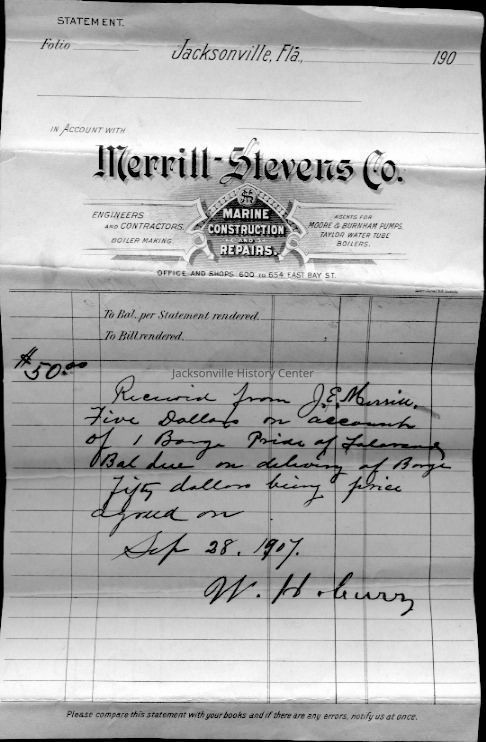 STATEMENT.
Folio
Jacksonville, Fla., 190
IN ACCOUNT WITH
Merrill-Stevens Co.
MARINE
CONSTRUCTION
AND
REPAIRS.
ENGINEERS
AND CONTRACTORS.
BOILER MAKING.
AGENTS FOR
MOORE & BURNHAM PUMPS.
TAYLOR WATER TUBE
BOILERS.
OFFICE AND SHOPS 600 TO 654 EAST BAY ST.
To Bal. per Statement rendered.
To Bill rendered.
Jacksonville History Center
$50.00
Received from J.E. Merrill,
Five Dollars on account
of 1 Barge Pride of
Bal due on delivery of Barge
Fifty dollars being price
agreed on
Sep 28. 1907.
W. H.
Please compare this statement with your books and if there are any errors, notify us at once.